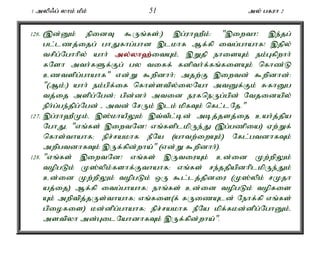 1 அலிஃப் லாம் மீம் 51 அல் பகரா 2
126. (இன்னும் நினைவு கூருங்கள்:) இப்ராஹீம்: "இறைவா! இந்தப்
பட்டணத்தைப் பாதுகாப்பான இடமாக ஆக்கி வைப்பாயாக! இதில்
வசிப்போரில் யார் அல்லாஹ்வையும், இறுதி நாளையும் நம்புகிறார்
களோ அவர்களுக்குப் பல வகைக் கனிவர்க்கங்களையும் கொண்டு
உணவளிப்பாயாக" என்று கூறினார்; அதற்கு இறைவன் கூறினான்:
"(ஆம்;) யார் நம்பிக்கை கொள்ளவில்லையோ அவனுக்கும் சுகானுப
வத்தை அளிப்பேன்; பின்னர் அவனை நரகநெருப்பின் வேதனையில்
நிர்பந்திப்பேன் , அவன் சேரும் இடம் மிகவும் கெட்டதே."
127. இப்ராஹீமும், இஸ்மாயீலும் இவ்வீட்டின் அடித்தளத்தை உயர்த்திய
போது, "எங்கள் இறைவனே! எங்களிடமிருந்து (இப்பணியை) ஏற்றுக்
கொள்வாயாக; நிச்சயமாக நீயே (யாவற்றையும்) கேட்பவனாகவும்
அறிபவனாகவும் இருக்கின்றாய்" (என்று கூறினார்).
128. "எங்கள் இறைவனே! எங்கள் இருவரையும் உன்னை முற்றிலும்
வழிபடும் முஸ்லிம்களாக்குவாயாக; எங்கள் சந்ததியினரிடமிருந்தும்
உன்னை முற்றிலும் வழிபடும் ஒரு கூட்டத்தினரை (முஸ்லிம் சமுதா
யத்தை) ஆக்கி வைப்பாயாக; நாங்கள் உன்னை வழிபடும் வழிகளை
யும் அறிவித்தருள்வாயாக; எங்களை(க் கருணையுடன் நோக்கி எங்கள்
பிழைகளை) மன்னிப்பாயாக; நிச்சயமாக நீயே மிக்கமன்னிப்போனும்,
அளவிலா அன்புடையோனாகவும் இருக்கின்றாய்".